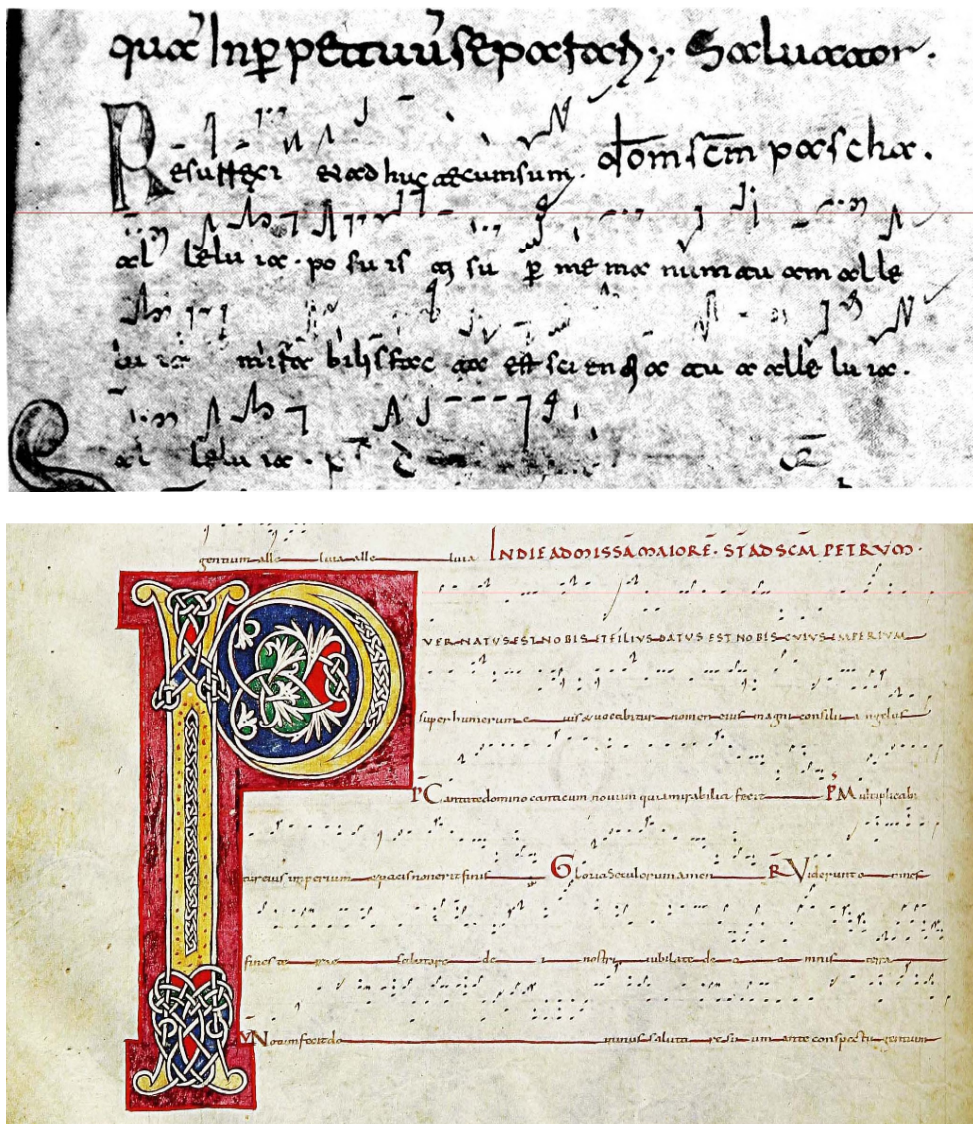 In Saluator ·
Resurrexi et adhuc tecum sum. dom scm pascha.
al lelu ia · po su is su p me ma num tu am alle
lu ia mira bilis fac ta est sci en a tu a alle lu ia.
al lelu ia ·
gentium alle luia alle luia INDIE AD MISSĀ MAIORĒ · STĀ AD SCM̄ PETRVM ·
PVER NATVS EST NOBIS ET FILIVS DATVS EST NOBIS CVIVS IMPERIVM
super humerum e ius & uocabitur nomen eius magni consilii a ngelus
Cantate domino canticum nouum quia mirabilia fecit Multiplicabi
tur eius imperium & pacis non erit finis Gloria Seculorum amen R Viderunt o mnes
fines te rrae salutare de i nostri iubilate de o o mnis terra
Notum fecit do minus saluta re su um ante conspectu gentium